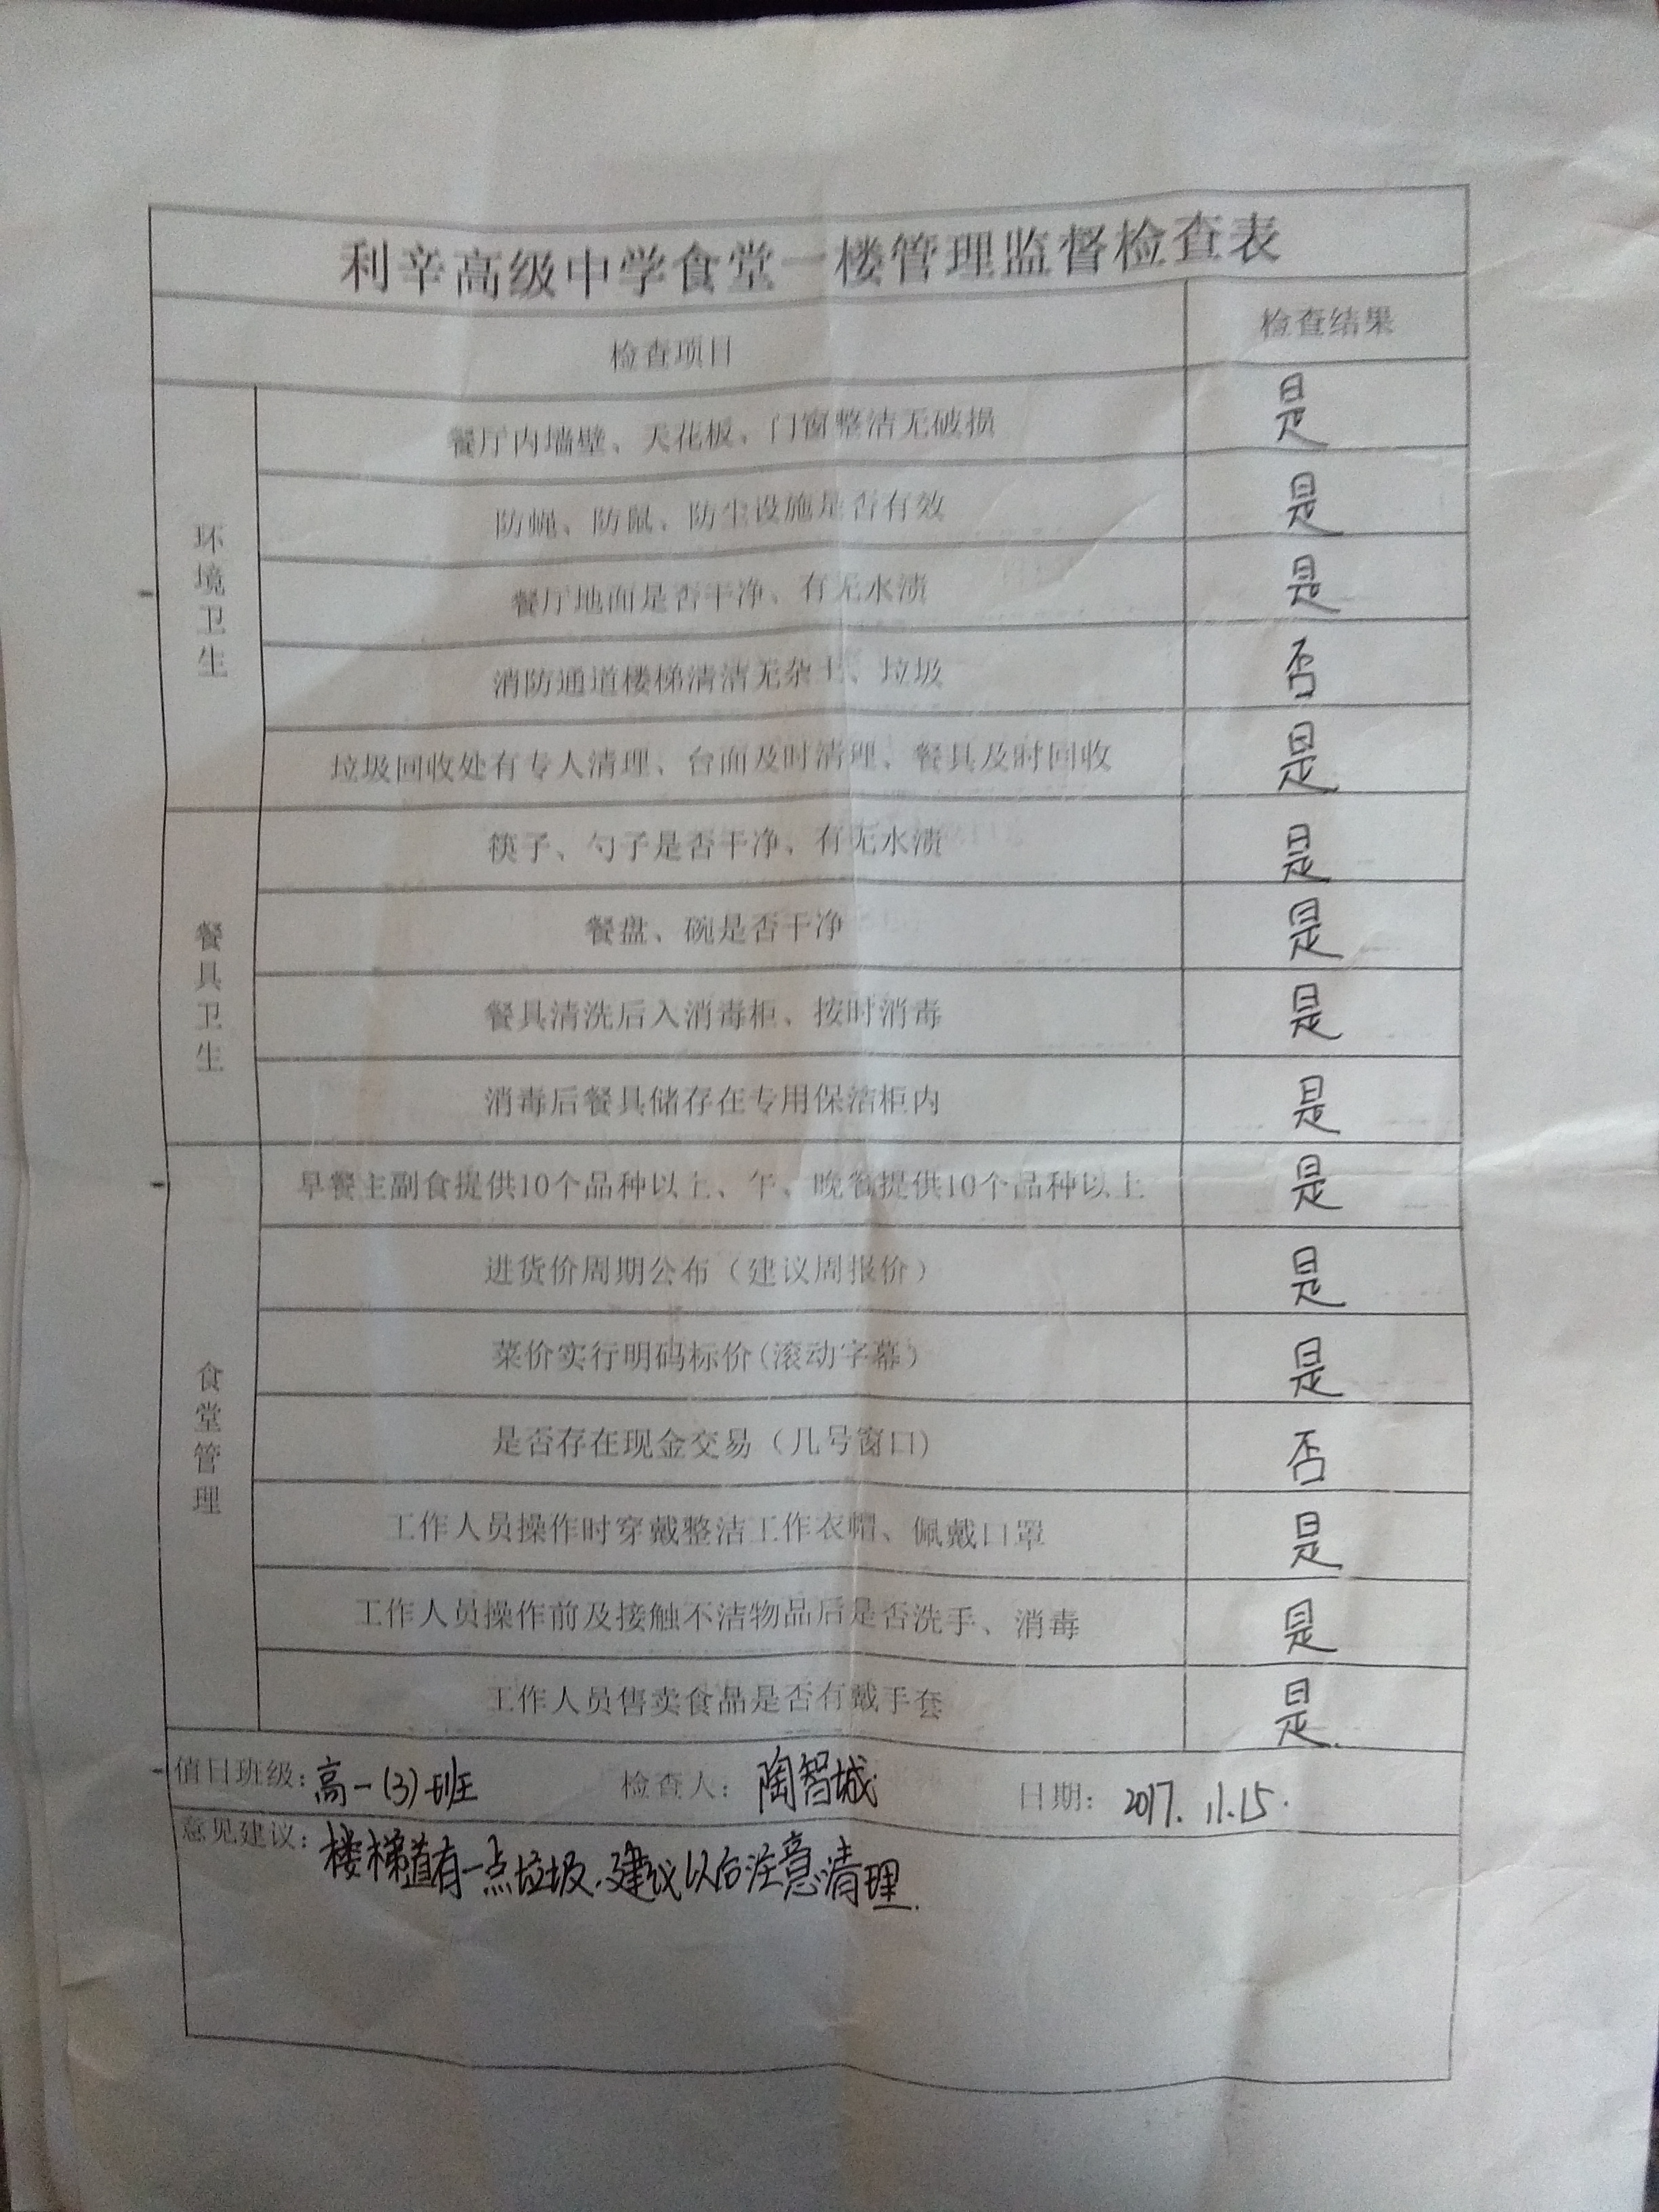 利辛高级中学食堂一楼管理监督检查表
检查项目 检查结果
环境卫生
餐厅内墙壁、天花板、门窗整洁无破损 是
防蝇、防鼠、防尘设施是否有效 是
餐厅地面是否干净、有无水渍 是
消防通道楼梯清洁无杂土、垃圾 否
垃圾回收处有专人清理、台面及时清理、餐具及时回收 是
餐具卫生
筷子、勺子是否干净、有无水渍 是
餐盘、碗是否干净 是
餐具清洗后入消毒柜、按时消毒 是
消毒后餐具储存在专用保洁柜内 是
食堂管理
早餐主副食提供10个品种以上、午、晚餐提供10个品种以上 是
进货价周期公布（建议周报价） 是
菜价实行明码标价(滚动字幕） 是
是否存在现金交易（几号窗口) 否
工作人员操作时穿戴整洁工作衣帽、佩戴口罩 是
工作人员操作前及接触不洁物品后是否洗手、消毒 是
工作人员售卖食品是否有戴手套 是.
值日班级: 高一(3)班 检查人: 陶智城 日期: 2017.11.15.
意见建议: 楼梯道有一点垃圾.建议以后注意清理.